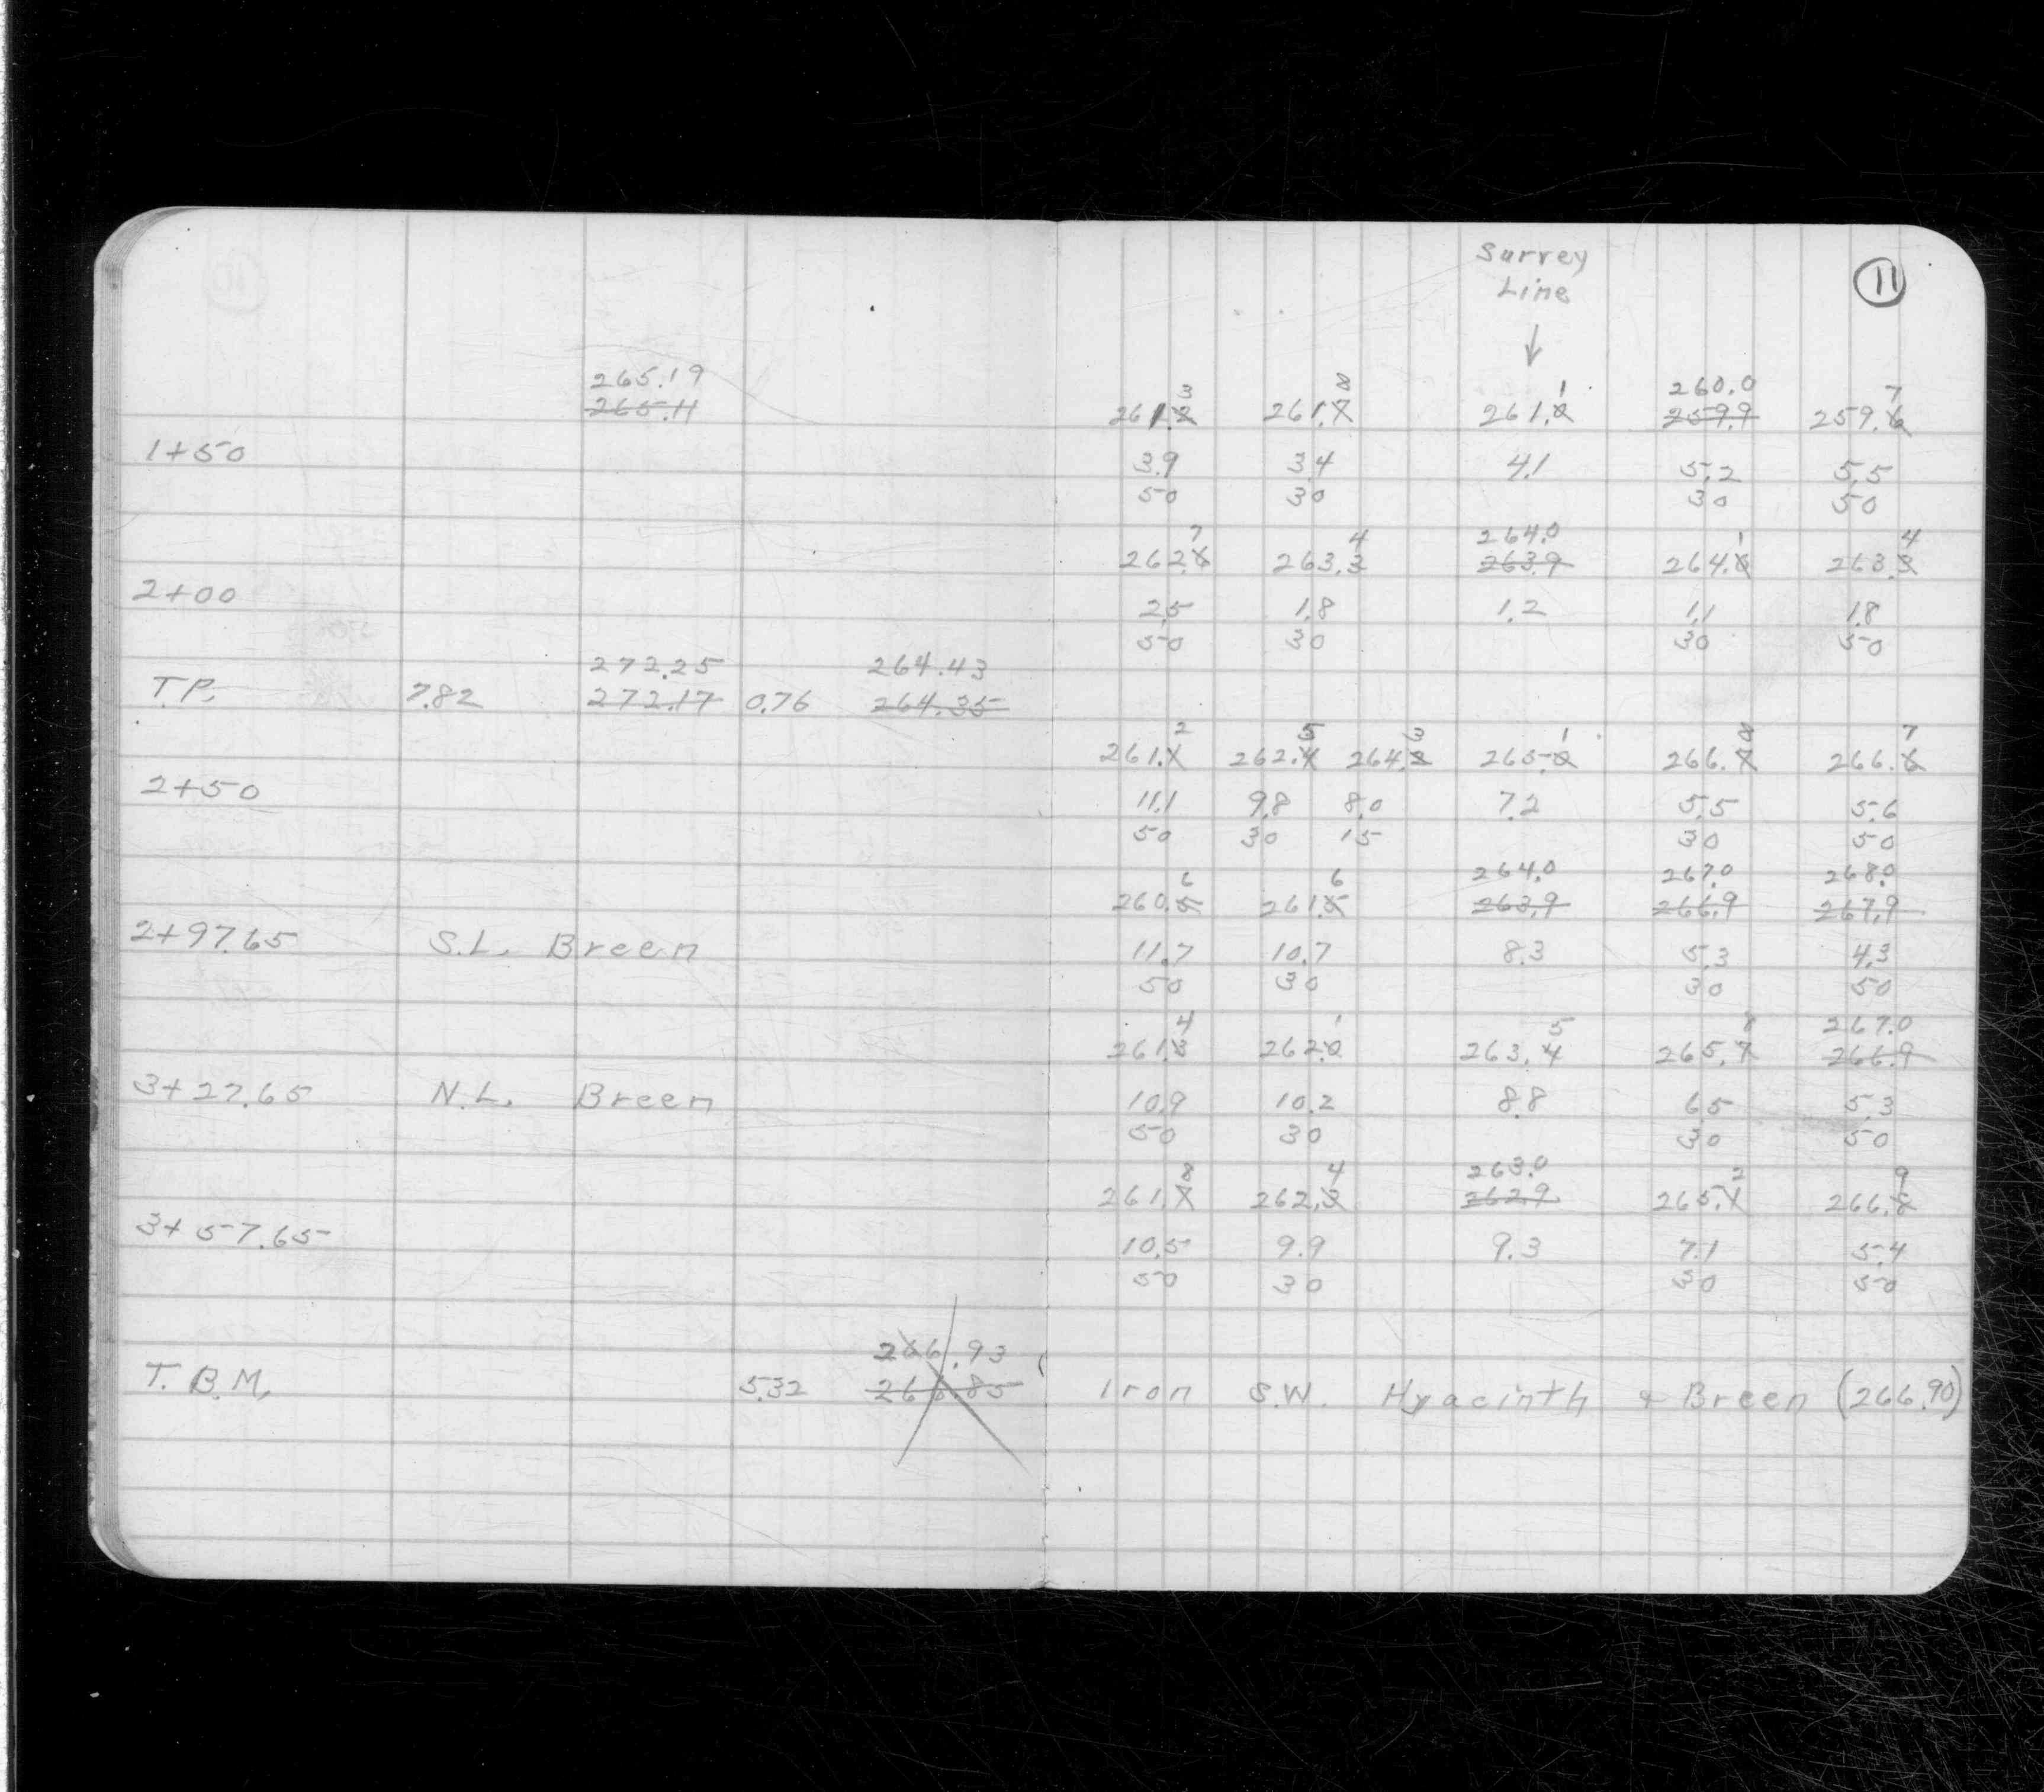 Surrey
Line
11
↓
265.19
265.11
3 8 1 260.0 7
261.2 261.7 261.0 259.9 259.6
1+50
3.9 3.4 4.1 5.2 5.5
50 30 30 50
7 4 264.0 1 4
262.6 263.3 263.9 264.0 263.3
2+00
2.5 1.8 1.2 1.1 1.8
50 30 30 50
272.25 264.43
T.P. 7.82 272.17 0.76 264.35
2 5 3 1 8 7
261.1 262.4 264.2 265.0 266.7 266.6
2+50
11.1 9.8 8.0 7.2 5.5 5.6
50 30 15 30 50
6 6 264.0 267.0 268.0
260.5 261.5 263.9 266.9 267.9
2+97.65 S.L. Breen
11.7 10.7 8.3 5.3 4.3
50 30 30 50
4 1 5 8 267.0
261.3 262.0 263.4 265.7 266.9
3+27.65 N.L. Breen
10.9 10.2 8.8 6.5 5.3
50 30 30 50
8 4 263.0 2 9
261.7 262.3 262.9 265.1 266.8
3+57.65
10.5 9.9 9.3 7.1 5.4
50 30 30 50
266.93
T.B.M. 5.32 266.85 Iron S.W. Hyacinth & Breen (266.90)